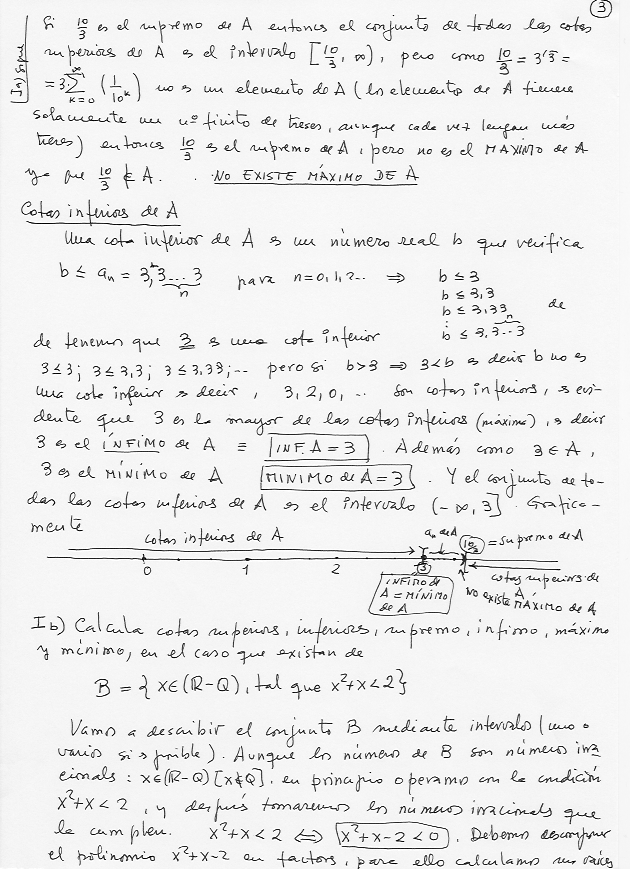 3
Ia) sigue
Si 10/3 es el supremo de A entonces el conjunto de todas las cotas
superiores de A es el intervalo [10/3, ∞), pero como 10/3 = 3'3̄ =
= 3·∑_{k=0}^{∞} (1/10^k) no es un elemento de A (los elementos de A tienen
solamente un nº finito de treses, aunque cada vez tengan más
treses) entonces 10/3 es el supremo de A, pero no es el MÁXIMO de A
ya que 10/3 ∉ A. . NO EXISTE MÁXIMO DE A
Cotas inferiores de A
Una cota inferior de A es un número real b que verifica
b ≤ a_n = 3,3...3 (n) para n=0,1,2... ⇒ b ≤ 3
b ≤ 3,3
b ≤ 3,33 de
⋮
b ≤ 3,3...3 (n)
de tenemos que 3 es una cota inferior
3≤3; 3≤3,3; 3≤3,33;... pero si b>3 ⇒ 3<b es decir b no es
una cota inferior es decir, 3, 2, 0, ... son cotas inferiores, es evi-
dente que 3 es la mayor de las cotas inferiores (máxima), es decir
3 es el ÍNFIMO de A ≡ INF. A = 3 . Además como 3 ∈ A,
3 es el MÍNIMO de A MINIMO de A = 3 . Y el conjunto de to-
das las cotas inferiores de A es el intervalo (-∞, 3]. Grafica-
mente
cotas inferiores de A a_n de A 10/3 = supremo de A
0 1 2 3
INFIMO de
A = MÍNIMO
de A
cotas superiores de
A
NO EXISTE MÁXIMO de A
Ib) Calcula cotas superiores, inferiores, supremo, ínfimo, máximo
y mínimo, en el caso que existan de
B = { x∈(ℝ-Q), tal que x²+x<2 }
Vamos a describir el conjunto B mediante intervalos (uno o
varios si es posible). Aunque los números de B son números irra
cionales: x∈(ℝ-Q) [x∉Q], en principio operamos con la condición
x²+x<2, y después tomaremos los números irracionales que
la cumplen. x²+x<2 ⇔ x²+x-2<0 . Debemos descomponer
el polinomio x²+x-2 en factores, para ello calculamos sus raíces